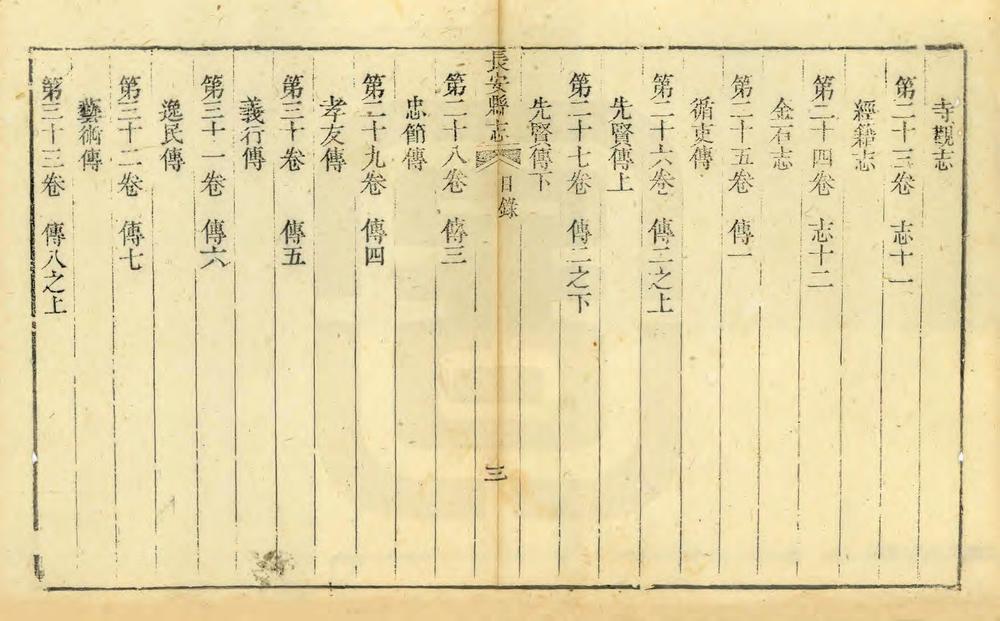 寺觀志
第二十三卷　志十一
經籍志
第二十四卷　志十二
金石志
第二十五卷　傳一
循吏傳
第二十六卷　傳二之上
先賢傳上
第二十七卷　傳二之下
先賢傳下
長安縣志　目錄　三
第二十八卷　傳三
忠節傳
第二十九卷　傳四
孝友傳
第三十卷　傳五
義行傳
第三十一卷　傳六
逸民傳
第三十二卷　傳七
藝術傳
第三十三卷　傳八之上